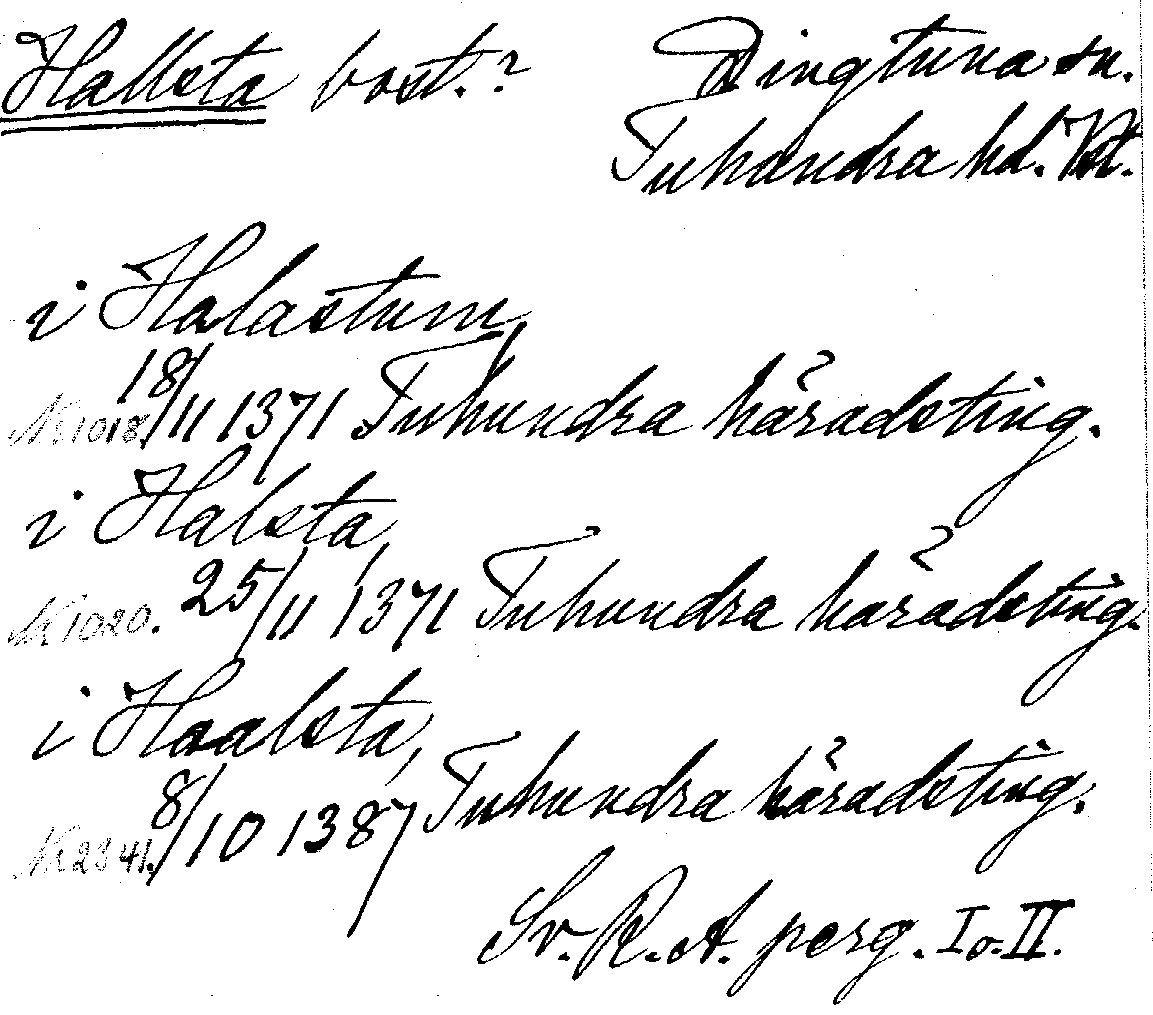 Hallsta bost.? Dingtuna sn.
Tuhundra hd. Vstm.
i Halastum,
Nr 1018. 18/11 1371 Tuhundra häradsting.
i Halsta,
Nr 1020. 25/11 1371 Tuhundra häradsting.
i Haalsta,
Nr 2341. 8/10 1387 Tuhundra häradsting.
Sv. R. A. perg. I o. II.